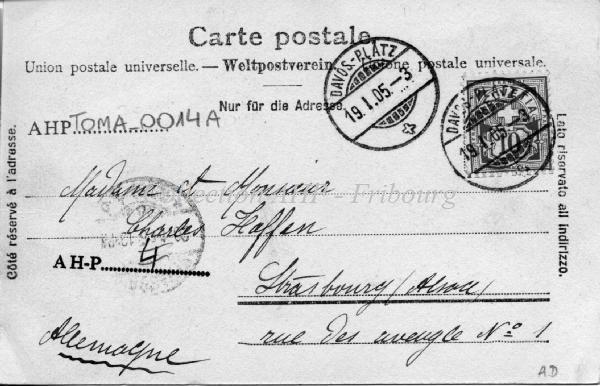 Carte postale.
Union postale universelle. — Weltpostverein. — Unione postale universale.
Nur für die Adresse.
DAVOS-PLATZ
19.I.05.-3
19.I.05.-3
10
AHP TOMA_0014A
Côté réservé à l'adresse.
Lato riservato all indirizzo.
Madame et Monsieur
Collection AHP - Fribourg
Charles Haffen
AH-P. 4
Strasbourg (Alsace)
rue des aveugle No 1
Allemagne
AD